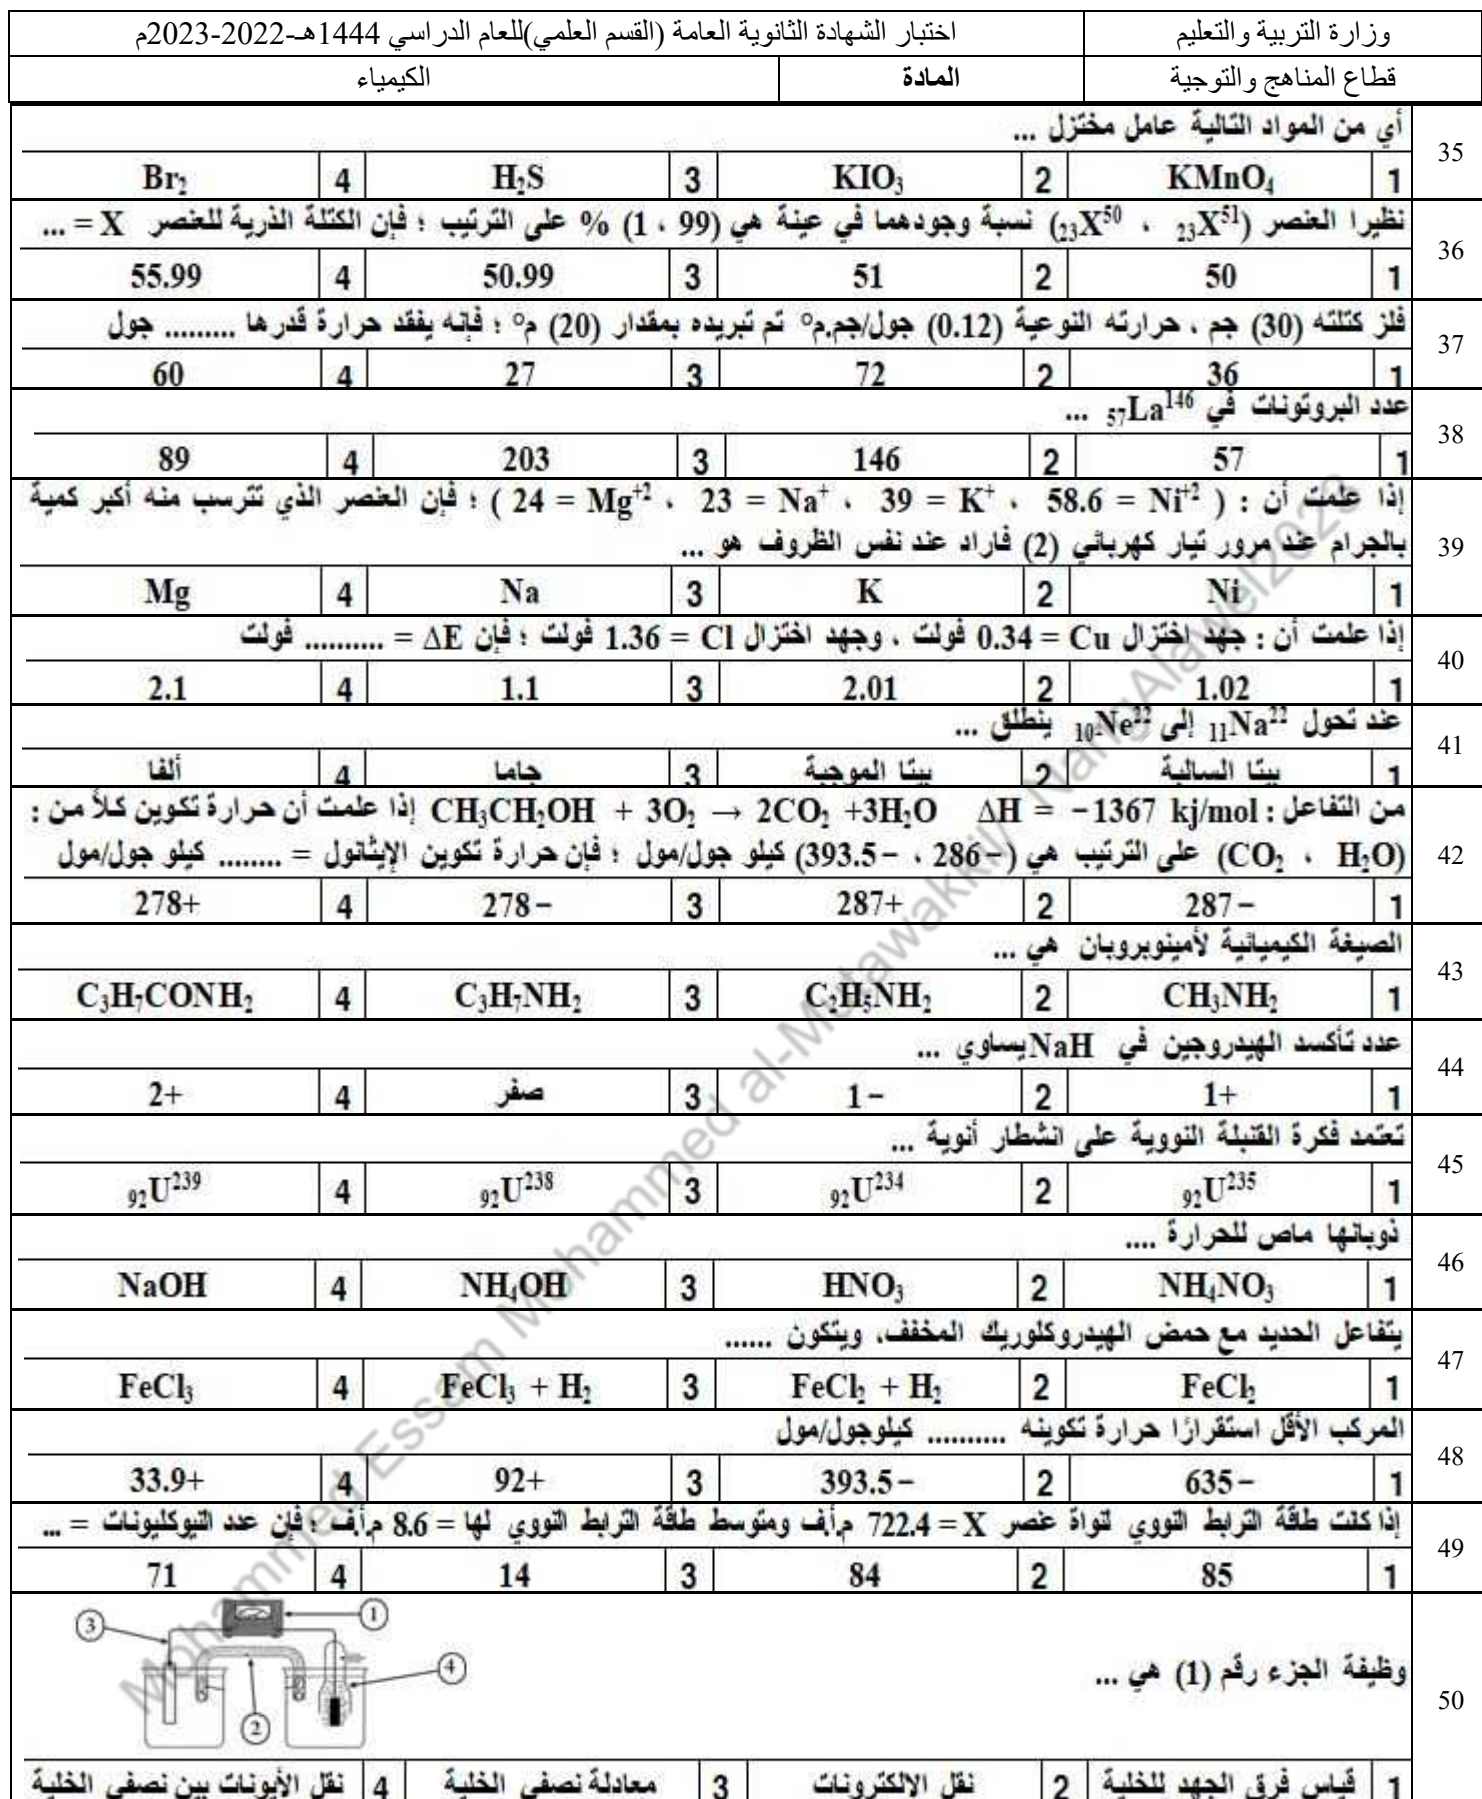 وزارة التربية والتعليم اختبار الشهادة الثانوية العامة (القسم العلمي)للعام الدراسي 1444هـ-2022-2023م
قطاع المناهج والتوجية المادة الكيمياء
35 أي من المواد التالية عامل مختزل ...
1 KMnO₄ 2 KIO₃ 3 H₂S 4 Br₂
36 نظيرا العنصر (₂₃X⁵¹ ، ₂₃X⁵⁰) نسبة وجودهما في عينة هي (99 ، 1) % على الترتيب ؛ فإن الكتلة الذرية للعنصر X = ...
1 50 2 51 3 50.99 4 55.99
37 فلز كتلته (30) جم ، حرارته النوعية (0.12) جول/جم.م° تم تبريده بمقدار (20) م° ؛ فإنه يفقد حرارة قدرها ......... جول
1 36 2 72 3 27 4 60
38 عدد البروتونات في ₅₇La¹⁴⁶ ...
1 57 2 146 3 203 4 89
39 إذا علمت أن : ( Ni⁺² = 58.6 ، K⁺ = 39 ، Na⁺ = 23 ، Mg⁺² = 24 ) ؛ فإن العنصر الذي تترسب منه أكبر كمية
بالجرام عند مرور تيار كهربائي (2) فاراد عند نفس الظروف هو ...
1 Ni 2 K 3 Na 4 Mg
40 إذا علمت أن : جهد اختزال Cu = 0.34 فولت ، وجهد اختزال Cl = 1.36 فولت ؛ فإن ΔE = .......... فولت
1 1.02 2 2.01 3 1.1 4 2.1
41 عند تحول ₁₁Na²² إلى ₁₀Ne²² ينطلق ...
1 بيتا السالبة 2 بيتا الموجبة 3 جاما 4 ألفا
42 من التفاعل : CH₃CH₂OH + 3O₂ → 2CO₂ +3H₂O ΔH = −1367 kj/mol إذا علمت أن حرارة تكوين كلاً من :
(CO₂ ، H₂O) على الترتيب هي (−286 ، −393.5) كيلو جول/مول ؛ فإن حرارة تكوين الإيثانول = ........ كيلو جول/مول
1 −287 2 +287 3 −278 4 +278
43 الصيغة الكيميائية لأمينوبروبان هي ...
1 CH₃NH₂ 2 C₂H₅NH₂ 3 C₃H₇NH₂ 4 C₃H₇CONH₂
44 عدد تأكسد الهيدروجين في NaH يساوي ...
1 +1 2 −1 3 صفر 4 +2
45 تعتمد فكرة القنبلة النووية على انشطار أنوية ...
1 ₉₂U²³⁵ 2 ₉₂U²³⁴ 3 ₉₂U²³⁸ 4 ₉₂U²³⁹
46 ذوبانها ماص للحرارة ....
1 NH₄NO₃ 2 HNO₃ 3 NH₄OH 4 NaOH
47 يتفاعل الحديد مع حمض الهيدروكلوريك المخفف، ويتكون ......
1 FeCl₂ 2 FeCl₂ + H₂ 3 FeCl₃ + H₂ 4 FeCl₃
48 المركب الأقل استقرارًا حرارة تكوينه .......... كيلوجول/مول
1 −635 2 −393.5 3 +92 4 +33.9
49 إذا كانت طاقة الترابط النووي لنواة عنصر X = 722.4 م.أ.ف ومتوسط طاقة الترابط النووي لها = 8.6 م.أ.ف ؛ فإن عدد النيوكليونات = ...
1 85 2 84 3 14 4 71
50 وظيفة الجزء رقم (1) هي ...
1
2
3
4
1 قياس فرق الجهد للخلية 2 نقل الإلكترونات 3 معادلة نصفي الخلية 4 نقل الأيونات بين نصفي الخلية
Mohammed Essam Mohammed al-Mutawakkil/ NamgAlawel2023